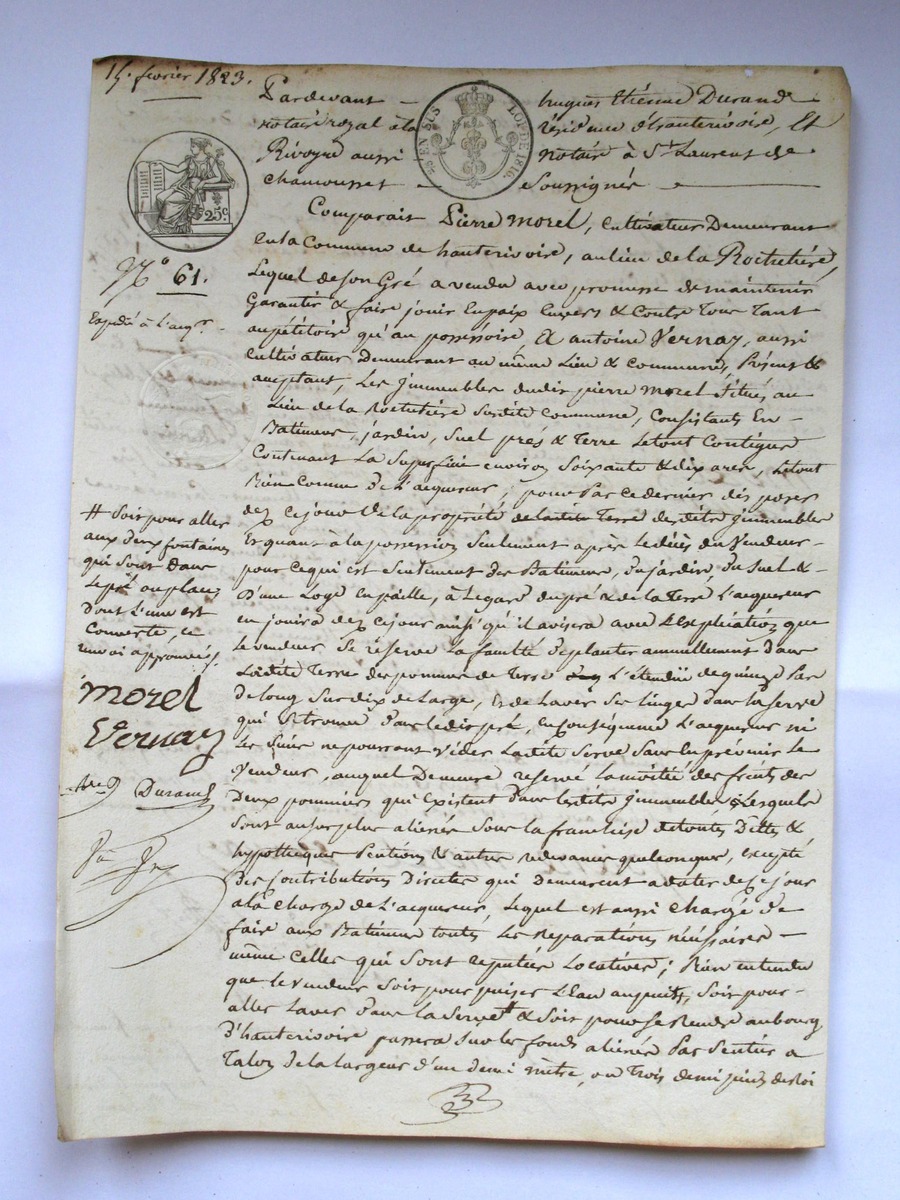 15. fevrier 1823.
Pardevant hugues Etienne Durand
notaire royal à la résidence d'hauterivoire, Et
Rivoyre aussi notaire à St Laurent de
chamousset soussignés
25 EN SUS LOI DE 1816
25c
N° 61.
Expédié à l'acqr.
Comparait Pierre morel, cultivateur Demeurant
en la Commune de hauterivoire, au lieu de la Rochetière,
Lequel de son Gré a vendu avec promesse de maintenir
Garantir & faire jouir en paix Envers & Contre Tous Tant
au pétitoire qu'au possessoire, A antoine Vernay, aussi
Cultivateur Demeurant au même Lieu & commune, Présent &
acceptant, Les jmmeubles dudit pierre morel situés au
Lieu de la Rochetière susdite Commune, Consistants En
Batiments, jardin, Suel prés & Terre Le tout Contigus
Contenant La superficie environ Soixante & dix ares, Le tout
Bien Connu de L'acquereur, pour Par ce dernier disposer
dez ce jour de la propriété desdits jmmeubles
Et quant à la possession seulement après Le décès du Vendeur
pour Ce qui est seulement des Batiments, du jardin, du suel &
D'une Loge En paille, à Legard du pré & de la Terre L'acquereur
en jouira dez ce jour ainsi qu'il avisera avec L'Explication que
Le vendeur Se réserve La faculté de planter annuellement dans
Ladite Terre des pommes de Terre L'étendue de quinze Pas
de long Sur dix de Large, & de Laver Ses Linges dans la serve
qui se trouve dans ledit pré, En Conséquence L'acquereur ni
Les siens ne pourront Vider Ladite Serve Sans En prévenir Le
Vendeur, auquel Demeure réservé La moitié des fruits des
Deux pommiers qui Existent dans lesdits jmmeubles, Lesquels
sont au surplus aliénés sous la franchise de toutes Dettes &
hypotheques Pentions & autres redevances quelconques, excepté
Des Contributions Directes qui demeurent a dater de ce jour
a la charge de L'acquereur, Lequel est aussi Chargé de
faire aux Batiments toutes Les Reparations nécéssaires
même Celles qui sont reputées Locatives; Bien entendu
que le vendeur soit pour puiser L'Eau au puits, soit pour
aller Laver dans la Serve # & soit pour se Rendre au bourg
D'hauterivoire passera sur les fonds aliénés Par Sentier a
Talon de la largeur d'un demi mètre, ou Trois demi pieds de Roi
# Soit pour aller
aux deux fontaines
qui sont dans
Le pré au place
dont L'une est
Couverte, ce
renvoi approuvé
morel
Vernay
Durand